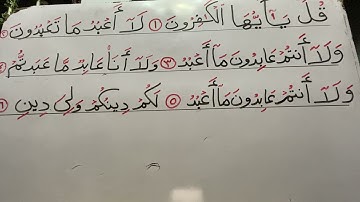 قُلْ يَا أَيُّهَا الْكٰفِرُونَ ① لَا أَعْبُدُ مَا تَعْبُدُونَ ②
وَلَا أَنتُمْ عَابِدُونَ مَا أَعْبُدُ ③ وَلَا أَنَا عَابِدٌ مَّا عَبَدتُّمْ ④
وَلَا أَنتُمْ عَابِدُونَ مَا أَعْبُدُ ⑤ لَكُمْ دِينُكُمْ وَلِيَ دِينِ ⑥